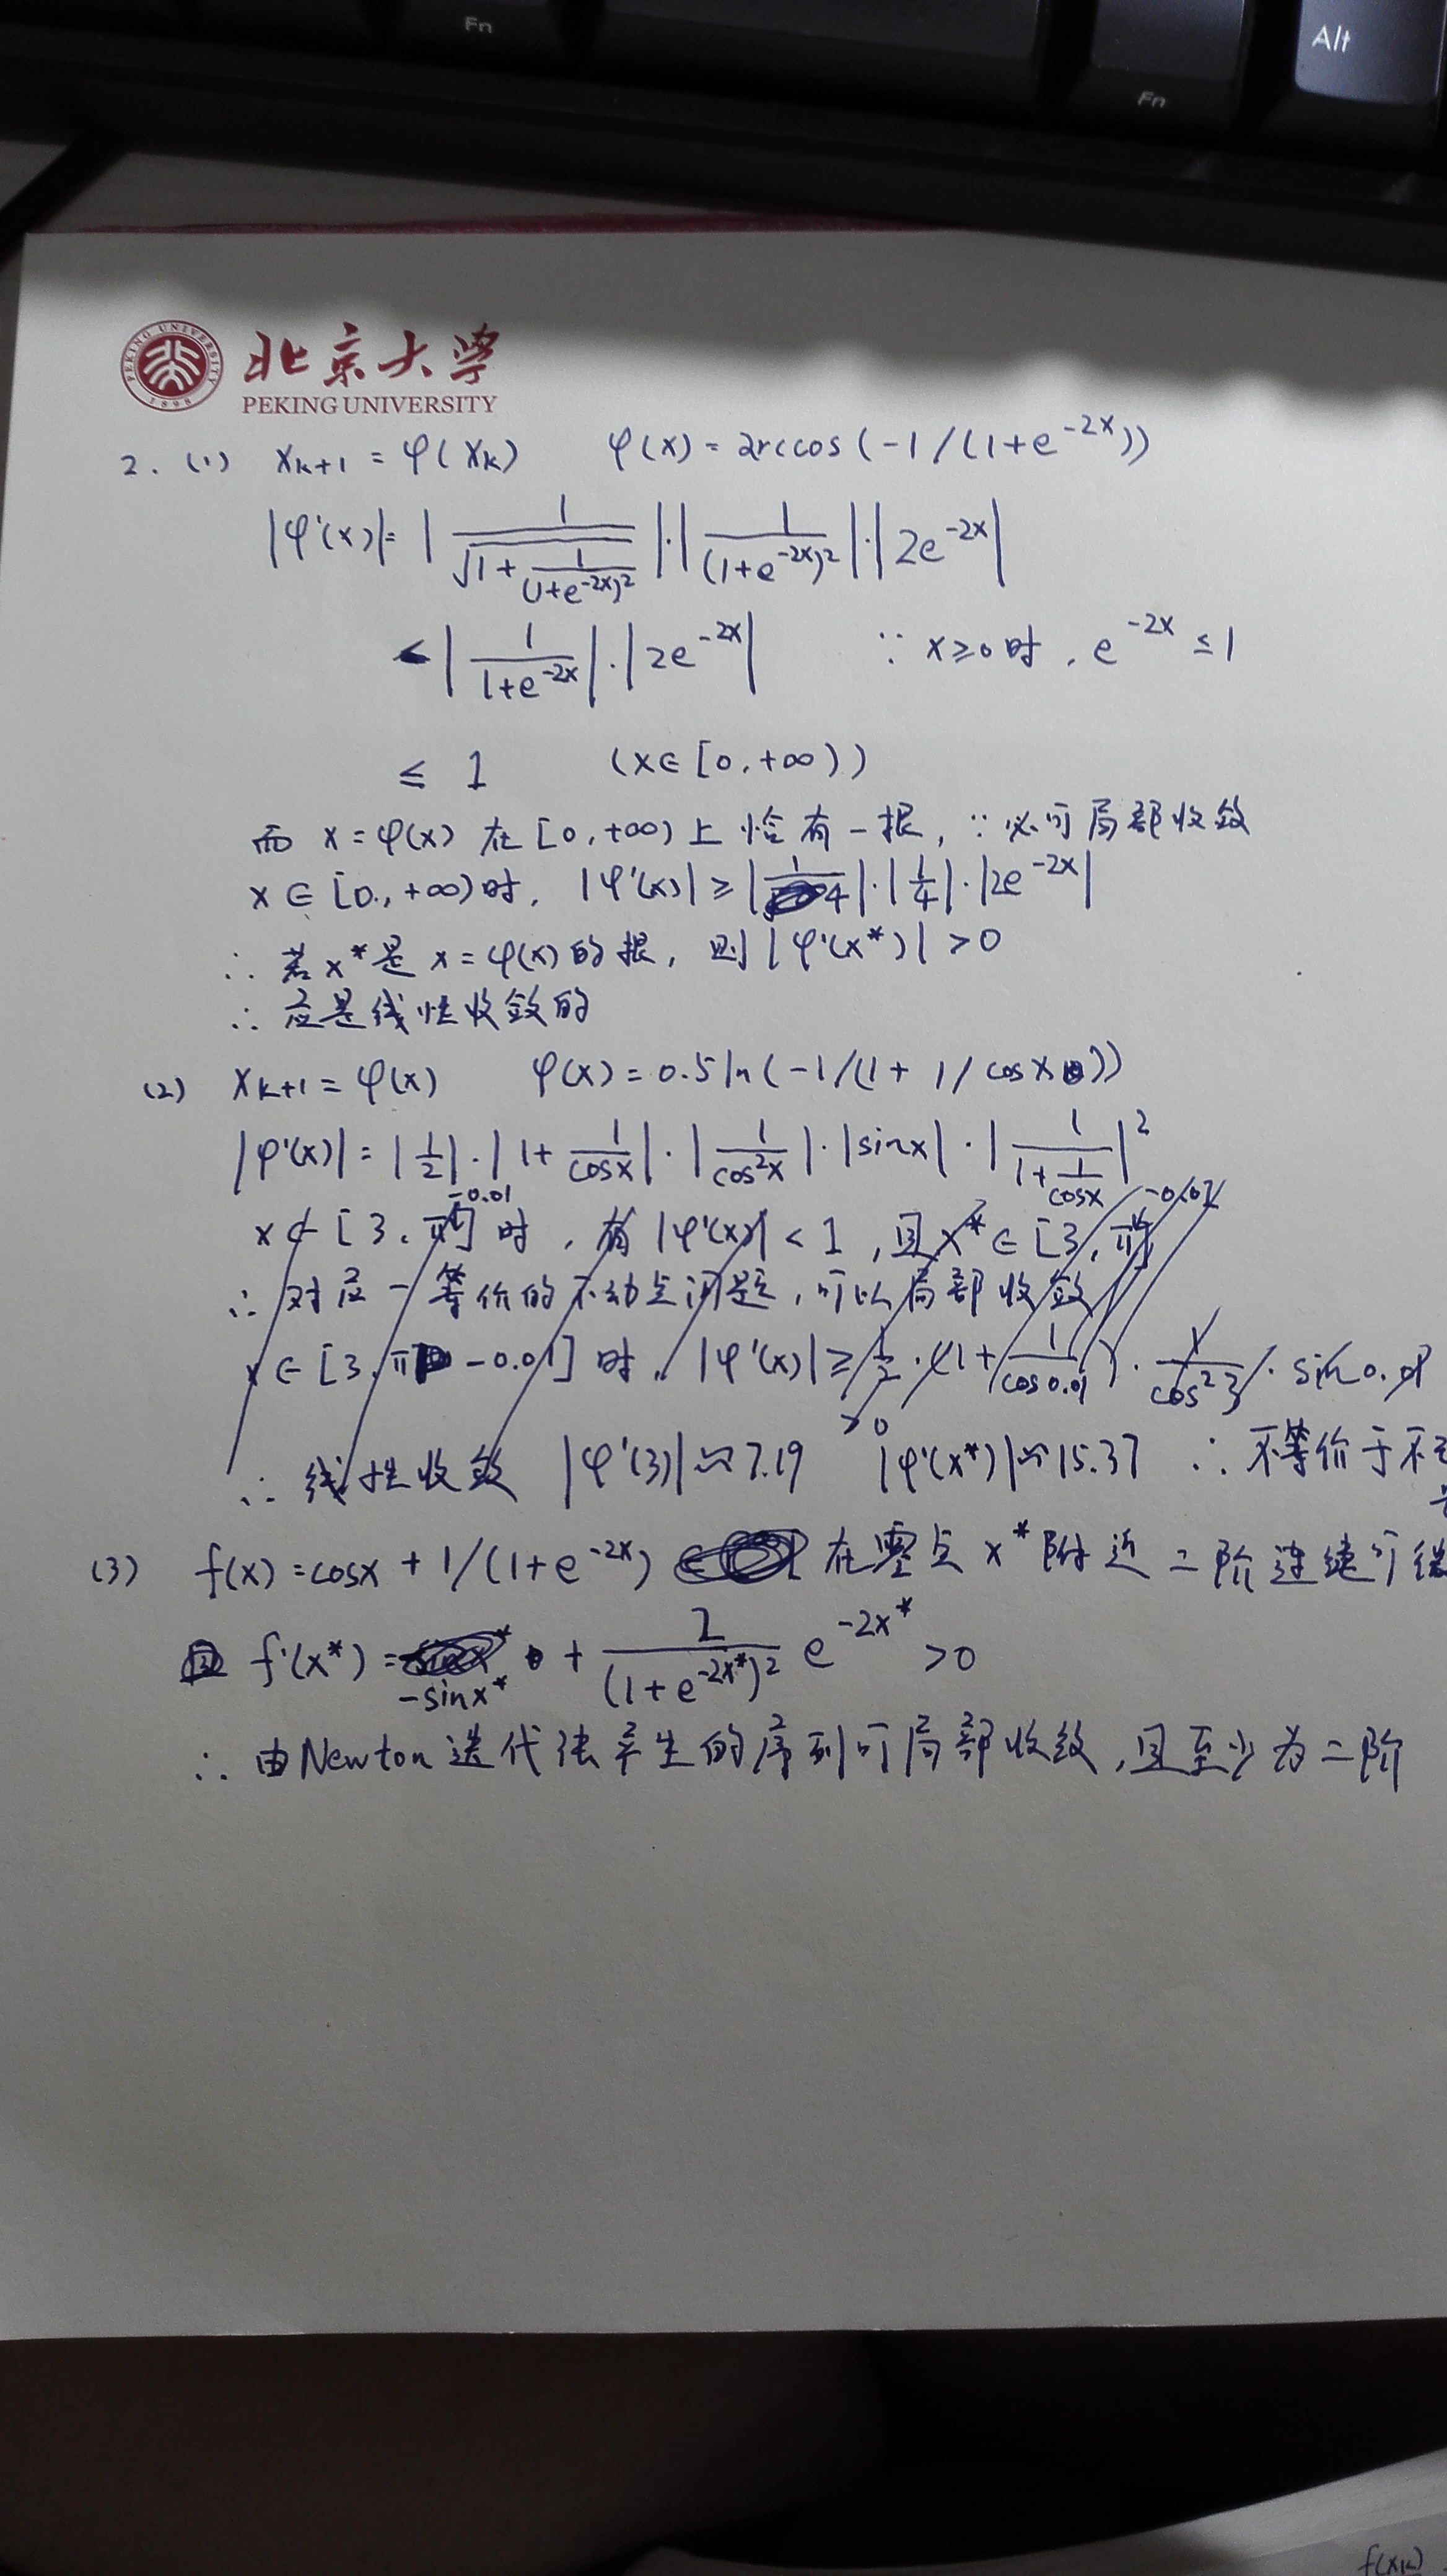 Fn
Alt
Fn
PEKING UNIVERSITY
1898
北京大学
PEKING UNIVERSITY
2. (1) x_{k+1} = φ(x_k) φ(x) = arccos(-1/(1+e^{-2x}))
|φ'(x)| = |1/√(1+1/(1+e^{-2x})²)|·|1/(1+e^{-2x})²|·|2e^{-2x}|
< |1/(1+e^{-2x})|·|2e^{-2x}| ∵ x≥0时, e^{-2x} ≤ 1
≤ 1 (x∈[0,+∞))
而 x=φ(x) 在[0,+∞)上恰有一根, ∵必可局部收敛
x∈[0,+∞)时, |φ'(x)| ≥ |1/4|·|1/4|·|2e^{-2x}|
∴ 若x*是 x=φ(x)的根, 则|φ'(x*)|>0
∴ 应是线性收敛的
(2) x_{k+1} = φ(x) φ(x) = 0.5ln(-1/(1+1/cosx))
|φ'(x)| = |1/2|·|1+1/cosx|·|1/cos²x|·|sinx|·|1/(1+1/cosx)|²
x∈[3,π-0.01]时, 有|φ'(x)|<1, 且x*∈[3,π-0.01]
∴ 对应一等价的不动点问题, 可以局部收敛
x∈[3,π-0.01]时, |φ'(x)| ≥ 1/2·(1+1/cos0.01)·1/cos²3·sin0.01
>0
∴ 线性收敛 |φ'(3)|≈7.19 |φ'(x*)|≈15.37 ∴ 不等价于不
(3) f(x)=cosx+1/(1+e^{-2x}) 在零点x*附近二阶连续可微
且 f'(x*) = -sinx* + 2/(1+e^{-2x*})² e^{-2x*} >0
∴ 由Newton迭代法产生的序列可局部收敛, 且至少为二阶
f(x_k)